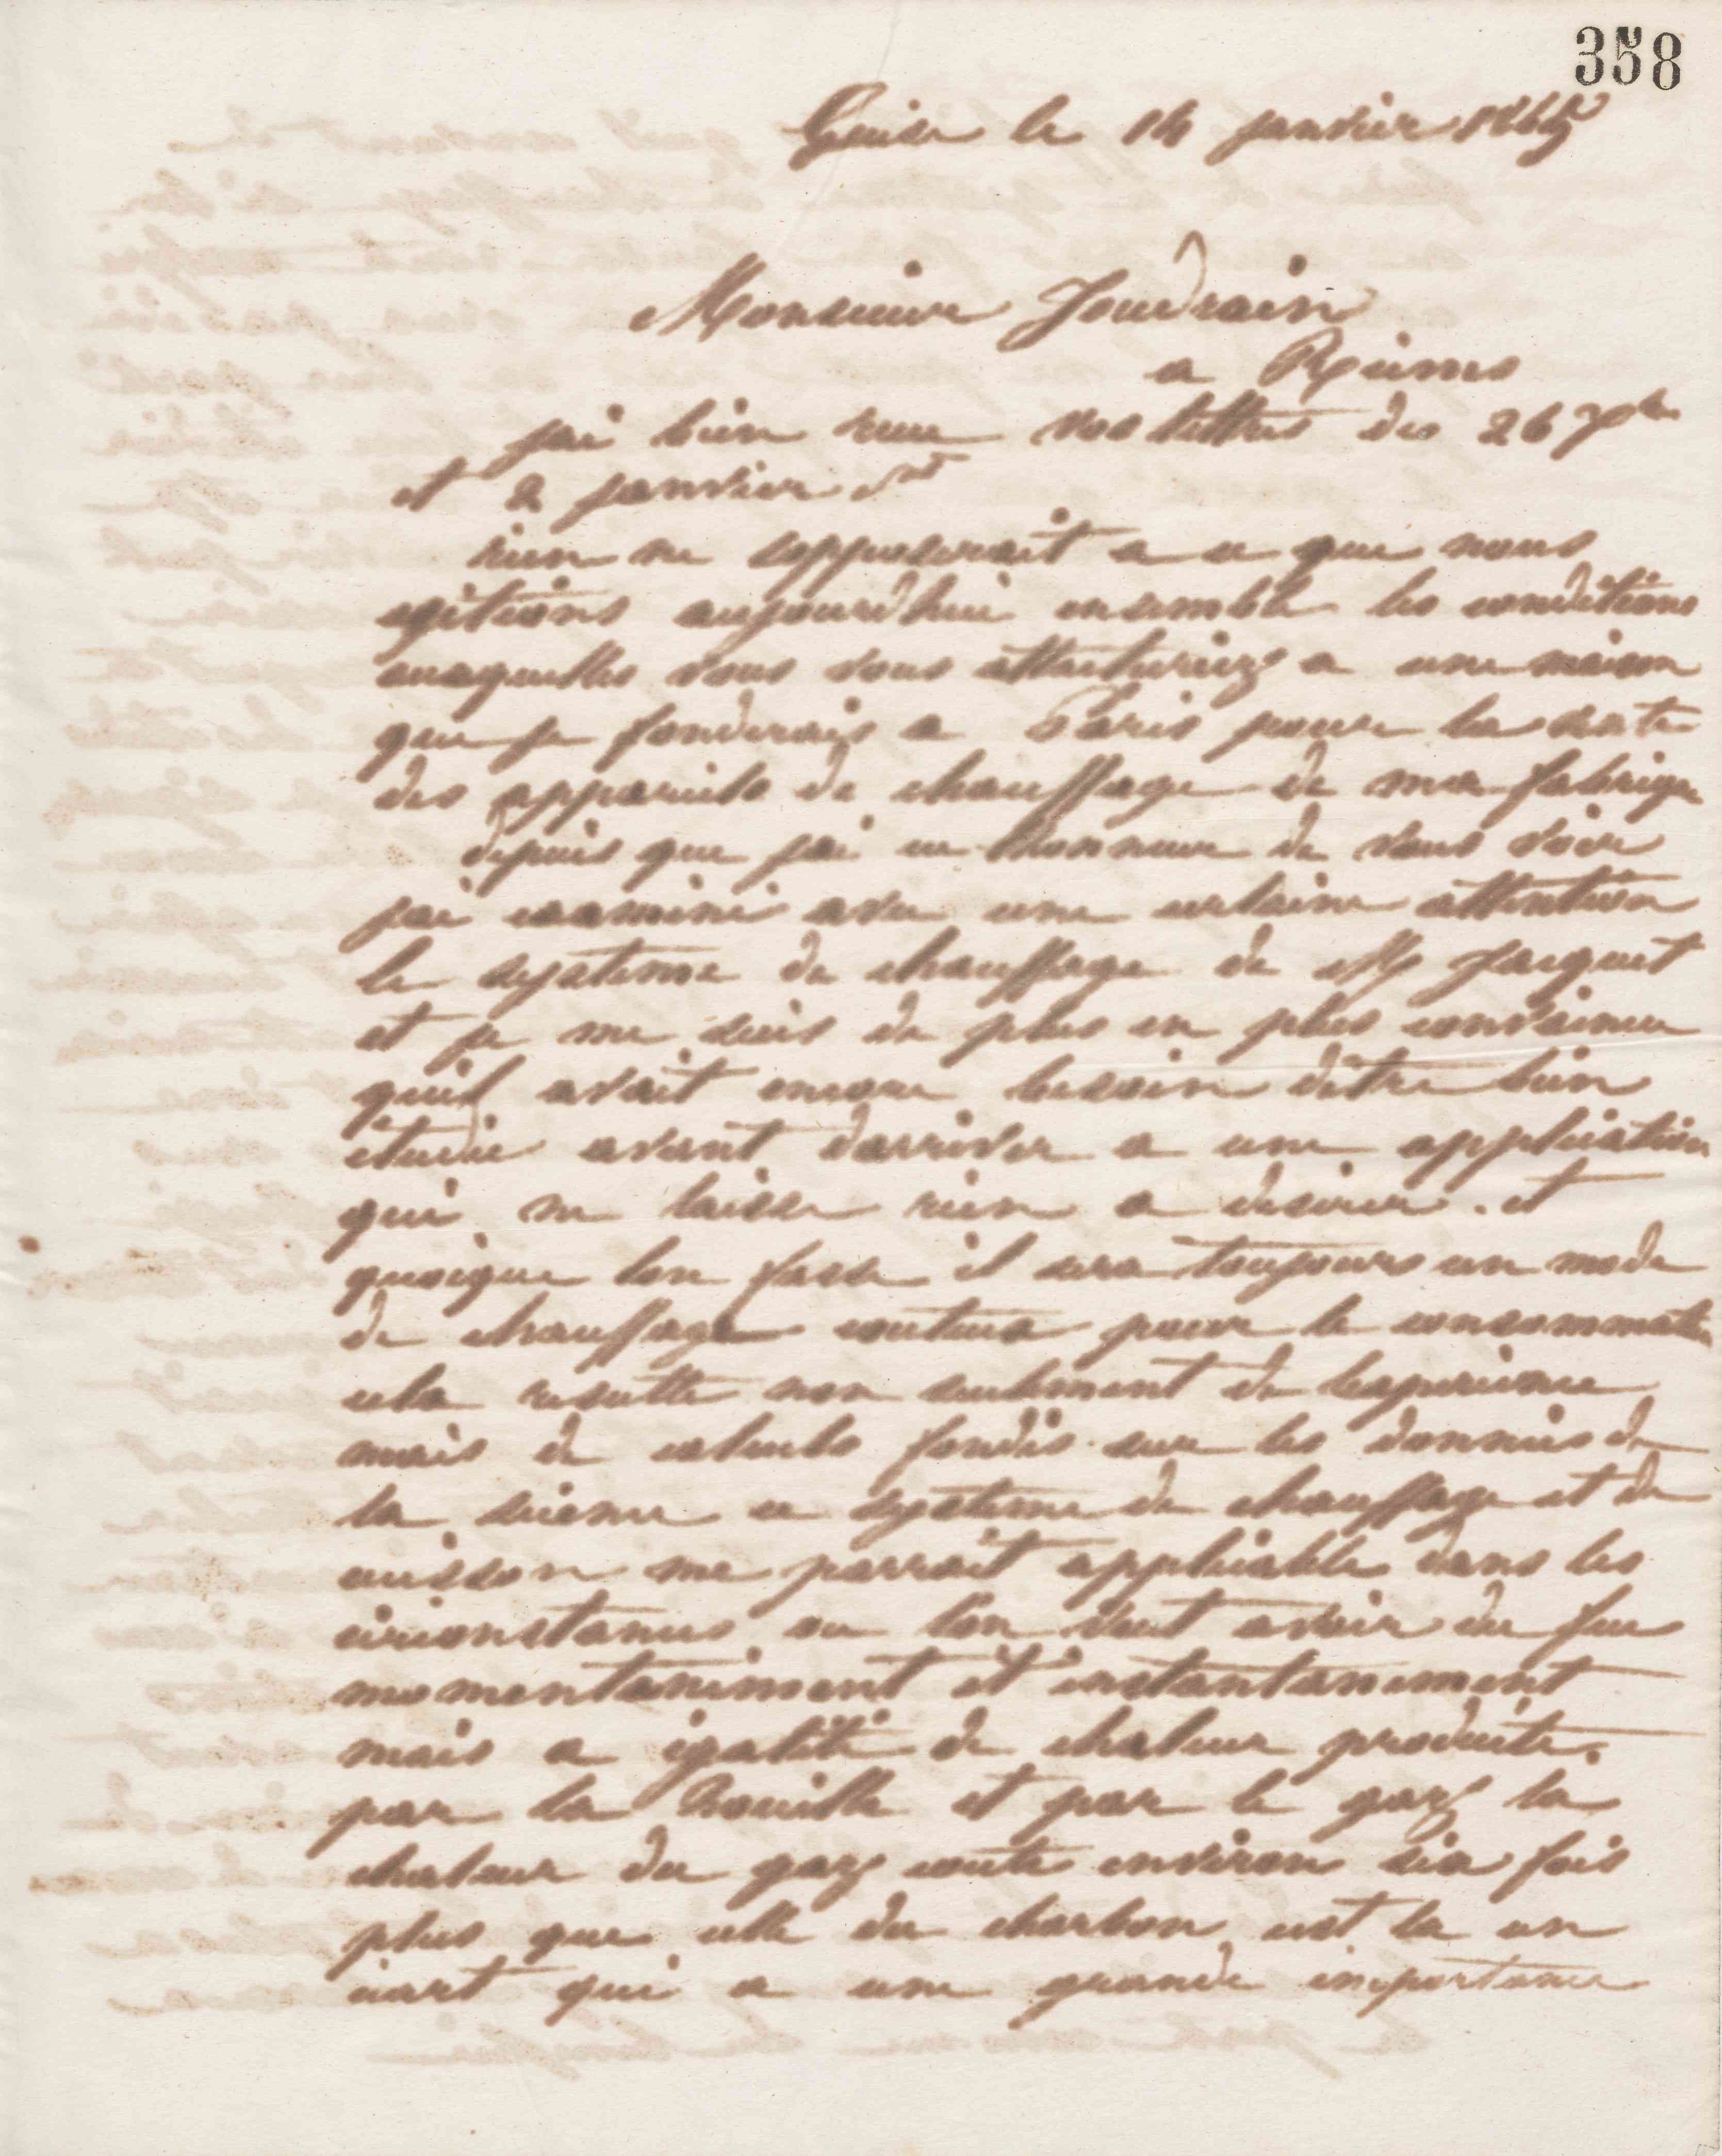 358
Guise le 14 janvier 1865
Monsieur Joudrain
a Reims
jai bien recu vos lettres des 26
et 2 janvier ct
rien ne sopposerait a ce que nous
agitions aujourdhui ensemble les conditions
auxquelles vous vous attacheriez a une maison
que je fonderais a Paris pour la vente
des appareils de chauffage de ma fabrique
depuis que jai eu lhonneur de vous voir
jai examiné avec une certaine attention
le systeme de chauffage de M Jacquet
et je me suis de plus en plus convaincu
quil avait encore besoin dêtre bien
étudié avant darriver a une application
qui ne laisse rien a desirer. et
quoique lon fasse il sera toujours un mode
de chauffage couteux pour le consommateur
cela resulte non seulement de lexperience
mais de calculs fondés sur les données de
la science ce systeme de chauffage et de
cuisson me parrait applicable dans les
circonstances ou lon veut avoir du feu
momentanément et instantanement
mais a égalité de chaleur produite
par la houille et par le gaz la
chaleur du gaz coute environ six fois
plus que celle du charbon cest la un
écart qui a une grande importance